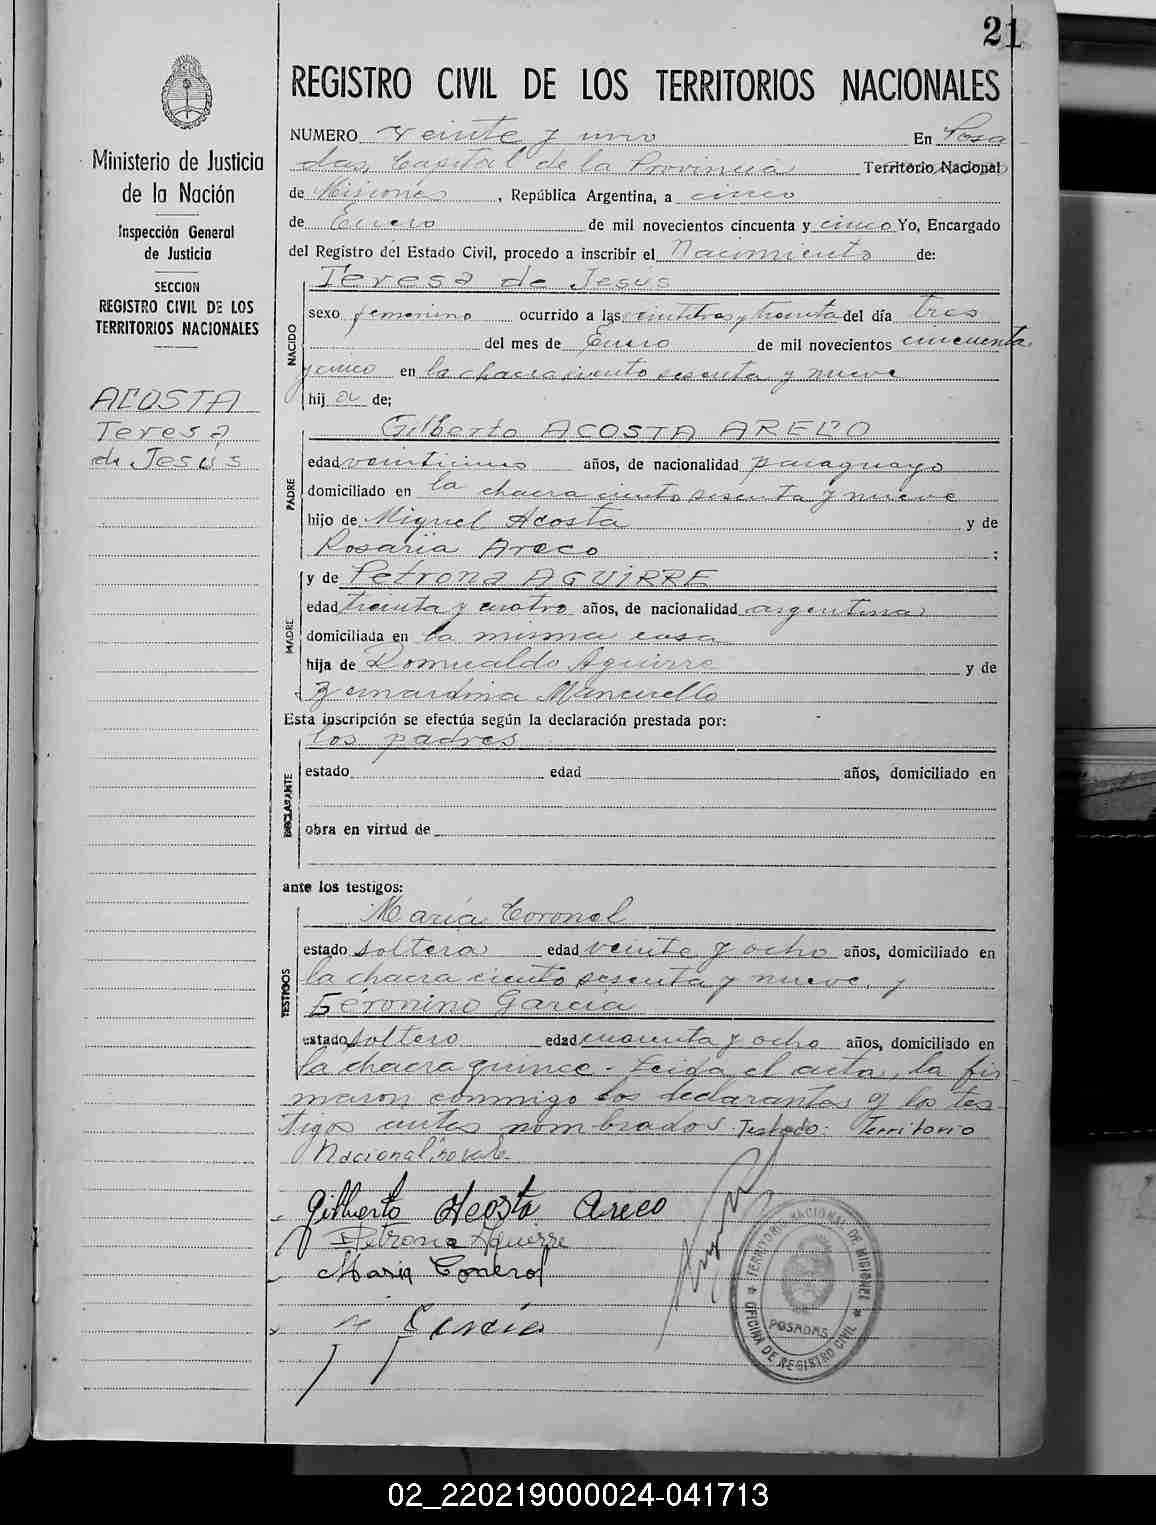 21
REGISTRO CIVIL DE LOS TERRITORIOS NACIONALES
Ministerio de Justicia
de la Nación
Inspección General
de Justicia
SECCION
REGISTRO CIVIL DE LOS
TERRITORIOS NACIONALES
ACOSTA
Teresa
de Jesús
NUMERO veinte y uno En Posa
das, Capital de la Provincia Territorio Nacional
de Misiones, República Argentina, a cinco
de Enero de mil novecientos cincuenta y cinco Yo, Encargado
del Registro del Estado Civil, procedo a inscribir el Nacimiento de:
NACIDO
Teresa de Jesús
sexo femenino ocurrido a las veintitres y treinta del día tres
del mes de Enero de mil novecientos cincuenta
y cinco en la chacra ciento sesenta y nueve
hija de:
PADRE
Gilberto ACOSTA ARECO
edad años, de nacionalidad paraguayo
domiciliado en la chacra ciento sesenta y nueve
hijo de Miguel Acosta y de
Rosaria Areco ;
MADRE
y de Petrona AGUIRRE
edad treinta y cuatro años, de nacionalidad argentina
domiciliada en la misma casa
hija de Romualdo Aguirre y de
Bernardina
Esta inscripción se efectúa según la declaración prestada por:
DECLARANTE
los padres
estado edad años, domiciliado en
obra en virtud de
ante los testigos:
TESTIGOS
María Coronel
estado soltera edad veinte y ocho años, domiciliado en
la chacra ciento sesenta y nueve, y
Geronino García
estado soltero edad cuarenta y ocho años, domiciliado en
la chacra quince - Leida el acta, la fir
maron conmigo los declarantes y los tes-
tigos antes nombrados. Testado: Territorio
Nacional: no vale-
Gilberto Acosta Areco
Petrona Aguirre
Maria Conerol
García
TERRITORIO NACIONAL DE MISIONES
POSADAS
OFICINA DE REGISTRO CIVIL
02_220219000024-041713